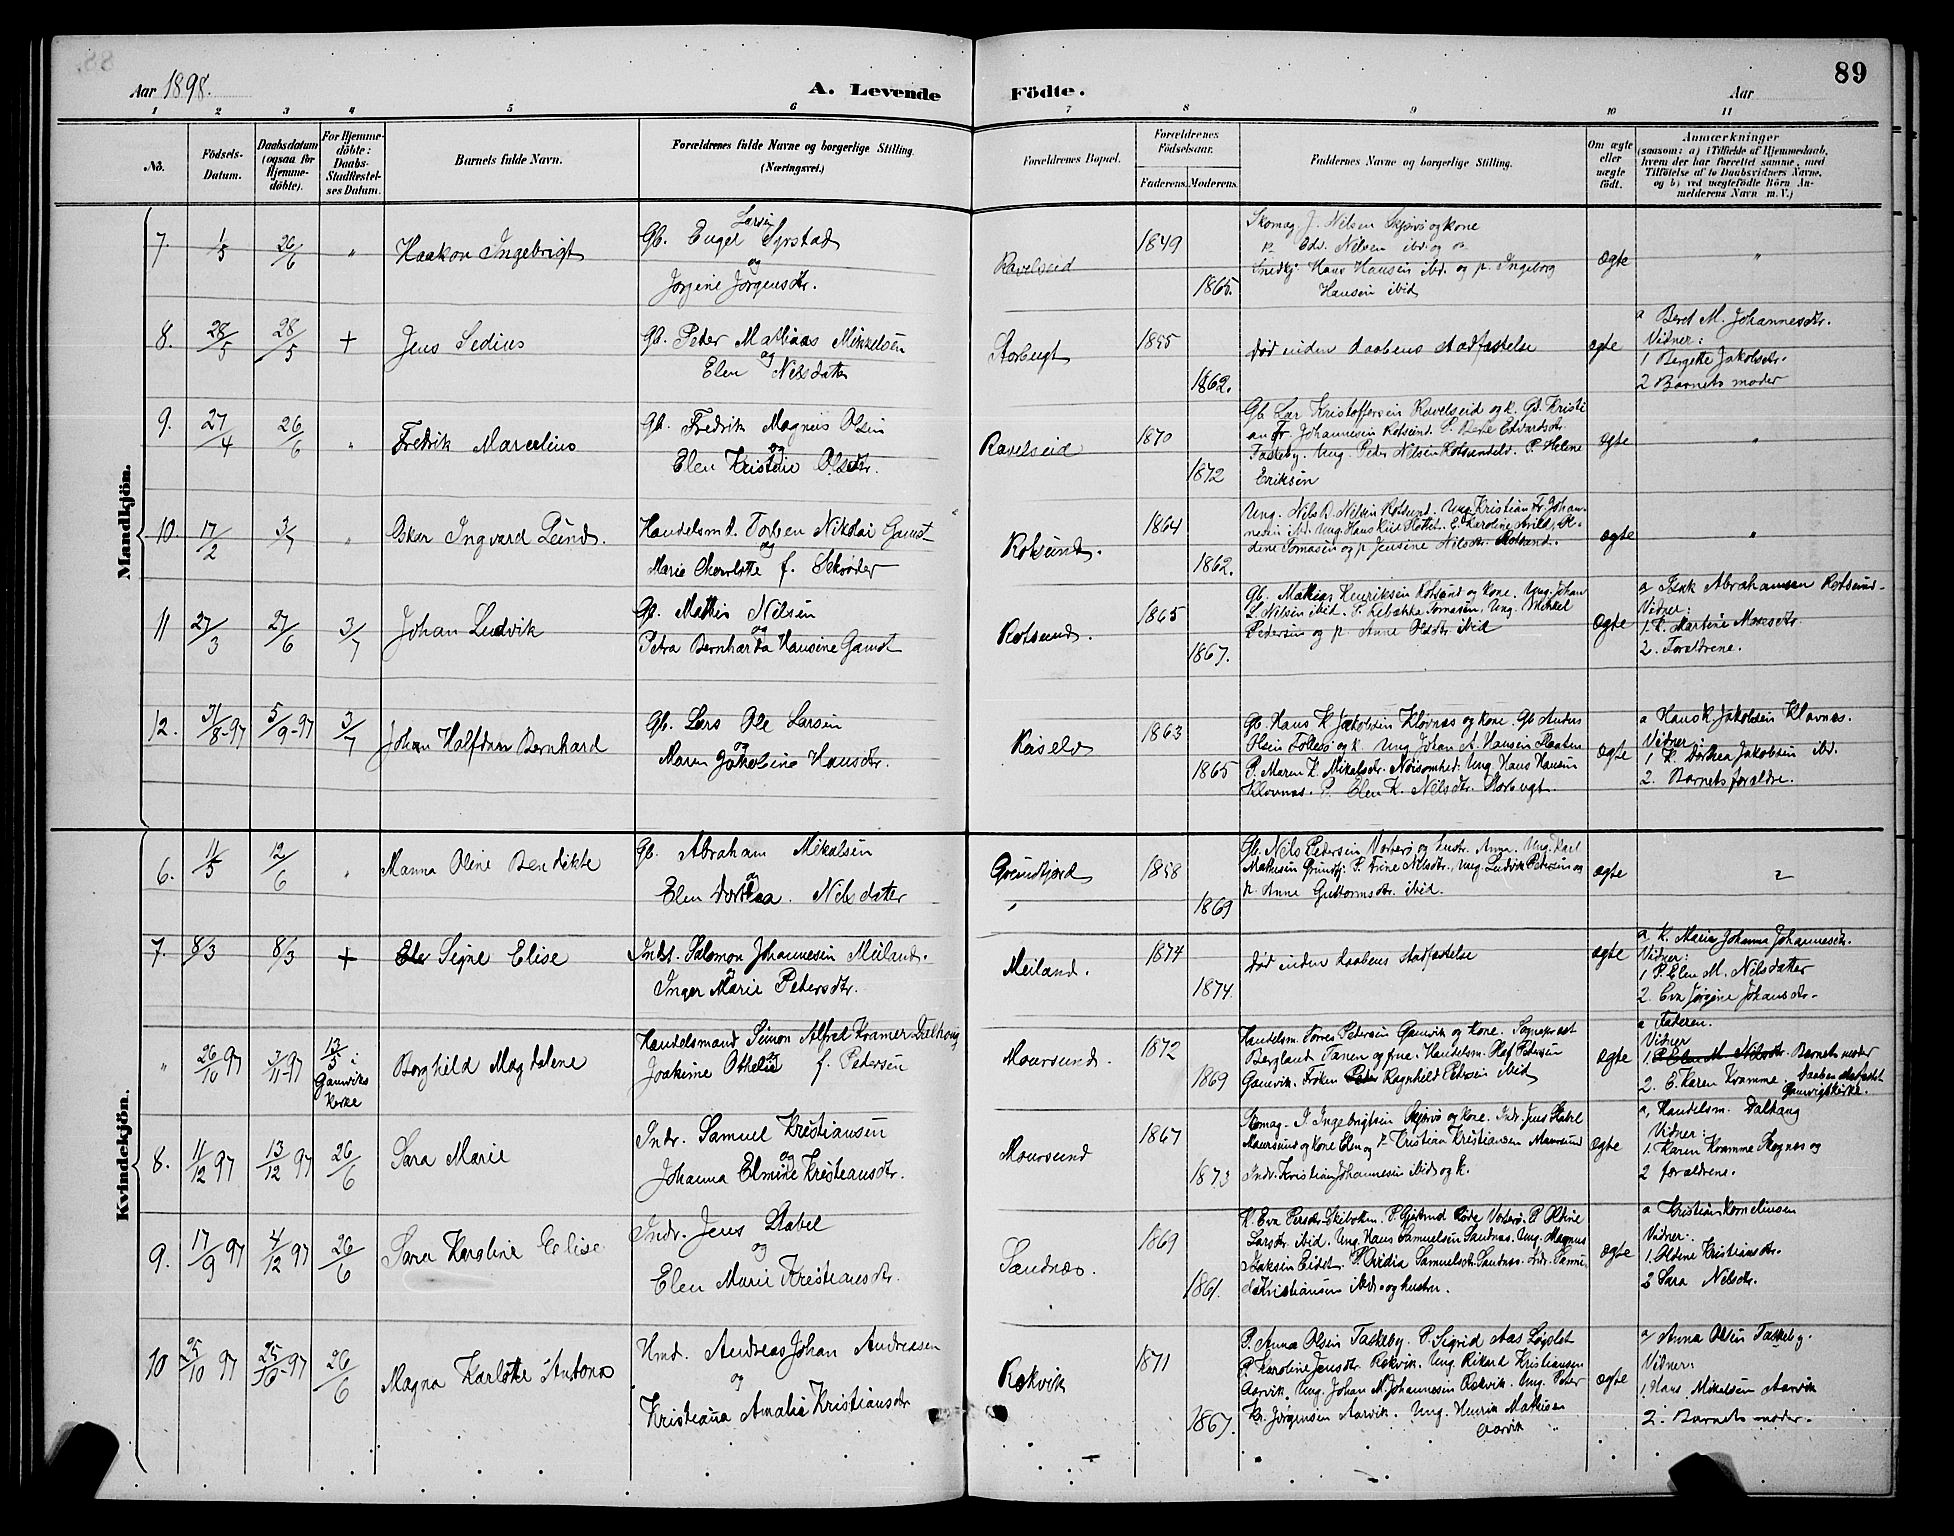 89
Aar 1898. A. Levende Födte. Aar
1 2 3 4 5 6 7 8 9 10 11
No. Födsels-Datum. Daabsdatum (ogsaa for Hjemme-döbte). For Hjemme-döbte: Daabs-Stadfæstel-ses Datum. Barnets fulde Navn. Forældrenes fulde Navne og borgerlige Stilling. (Næringsvei.) Forældrenes Bopæl. Forældrenes Födselsaar. Faderens. Moderens. Faddernes Navne og borgerlige Stilling. Om ægte eller uægte födt. Anmærkninger (saasom: a) i Tilfælde af Hjemmedaab, hvem der har forrettet samme, med Tilföielse af to Daabsvidners Navne, og b) ved uægtefödte Börn An-melderens Navn m. V.)
Mandkjön.
7. 1/5 26/6 " Haakon Ingebrigt
Gb. Engel Larsen Syrstad
og
Jørgine Jørgensdtr.
Ravelseid 1849 1865.
Skomag. J. Nilsen Skjervø og kone
p. Edv. Nilsen ibid og
Snedkj. Hans Hansen ibd. og p. Ingeborg
Hansen ibid
ægte "
8. 28/5 28/5 + Jens Sedius
Gb. Peter Mathias Mikkelsen
og
Elen Nilsdatter
Storbugt 1855 1862.
død inden daabens stadfæstelse
ægte
a Beret M. Johannesdtr.
Vidner:
1 Bergitte Jakobsdtr.
2 Barnets moder
9. 27/4 26/6 " Fredrik Marcelius
Gb. Fredrik Magnus Olsen
og
Elen Kristine Olsdtr.
Ravelseid 1870 1872
Gb Lar Kristoffersen Ravelseid og k. Gb. Kristi
an Fr. Johannesen Rotsund. P. Berte Edvardsdtr
Taskeby. Ung. Peder Nilsen Rotsundeld. P. Helene
Eriksen
ægte "
10. 17/2 3/7 " Oskar Ingvard Lund.
Handelsmd. Torben Nikolai Gamst
og
Marie Charlotte f. Schrøder
Rotsund. 1864 1862.
Ung. Nils O. Nilsen Rotsund. Ung Kristian Fr. Johan-
nesen ibd. Ung. Hans
dine Tomasen og p Jensine Nilsdtr. Rotsund.
ægte "
11 27/3 27/6 3/7 Johan Ludvik
Gb. Mathis Nilsen
og
Petra Bernharda Hansine Gamst
Rotsund. 1865 1867.
Gb. Mathias Henriksen Rotsund og kone. Ung. Johan
L. Nilsen ibid. P. Rebekka Tomasen, Ung. Mikkel
Pedersen og p. Anne Olsdtr. ibid
ægte
a Isak Abrahamsen Rotsund.
Vidner:
1. P. Martine Monsdtr.
2. Forældrene.
12. 31/8-97 5/9-97 3/7 Johan Halfdan Bernhard
Gb. Lars Ole Larsen
og
Maren Jakobine Hansdtr.
Reiselv 1863 1865
Gb. Hans K. Jakobsen Kløvnæs og kone. Gb Anders
Olsen Follesø og k. Ung Johan A. Hansen Flaaten
P. Maren K. Mikalsdtr. Nøisomhed. Ung. Hans Hansen
Kløvnæs. P. Elen K. Nilsdtr. Storbugt.
ægte
a Hans K. Jakobsen Kløvnæs.
Vidner:
1 K. Dorthea Jakobsen ibd.
2. Barnets forældre.
Kvindekjön.
6. 11/5 12/6 " Manna Oline Bendikte
Gb. Abraham Mikalsen
og
Elen Dorthea Nilsdatter
Grundfjord 1858 1869
Gb. Nils Pedersen Vorterø og hustr. Anna. Ung. Karl
Mathisen Grundfj. P. Trine Nilsdtr., Ung. Ludvik Pedersen og
p. Anne Guttormsdtr. ibid.
ægte "
7. 8/3 8/3 + Signe Elise
Indst. Salomon Johannesen Meiland.
og
Inger Marie Petersdtr.
Meiland. 1874 1874.
død inden daabens stadfæstelse
ægte
a. K. Maria Johanna Johannesdtr.
Vidner:
1. P. Elen M. Nilsdatter
2. Eva Jørgine Johansdtr.
" 26/10 97 3/11-97 13/3 i Gamviks kirke Borghild Magdalene
Handelsmand Simon Alfred Kramer Dalhaug
og
Joakime Othelie f. Pedersen
Maursund. 1872 1869
Handelsm. Torres Pedersen Gamvik og kone. Sogneprest
Bergland Tanen og frue. Handelsm. Olaf Pedersen
Gamvik. Frøken Ragnhild Pedersen ibid
ægte
a Faderen.
Vidner
1. P. Elen M. Nilsdtr. Barnets moder
2. E. Karen Kramme Daaben stadfæstet
Gamvigs kirke.
8. 11/12 97 13/12 97 26/6 Sara Marie
Indr. Samuel Kristiansen
og
Johanna Elmine Kristiansdtr.
Maursund 1867 1873
Skomag. J. Ingebrigtsen Skjervø og kone. Indr. Jens Stabel
Maursund og kone Elen og p. Kristian Kristiansen Maursund
Indr. Kristian Johannesen ibid og k.
ægte
a, Handelsm. Dalhaug
Vidner:
1. Karen Kramme Kognæs og
2 forældrene.
9. 17/9 97 4/12 97 26/6 Sara Karoline Elise
Indr. Jens Stabel
og
Elen Marie Kristiansdtr.
Sandnæs. 1869 1861.
K. Eva Persdtr. Skibotten. P. Gjertrud Røde Vorterø. P Oldine
Larsdtr. ibid. Ung. Hans Samuelsen Sandnæs. Ung. Magnus
Isaksen Eidet. P. Ovidia Samuelsdtr. Sandnæs. Indr. Samu
el Kristiansen ibid. og hustru.
ægte
a Kristian Kornelius­sen
Vidner:
1. Oldine Kristiansdtr.
2 Sara Nilsdtr.
10 25/10 97 25/10-97 26/6 Magna Karlotte Antona
Hmd. Andreas Johan Andreasen
og
Kristiana Amalie Kristiansdtr
Rakvik 1871 1867.
P. Anna Olsen Taskeby. P. Sigrid Aas Løgslet
P. Karoline Jensdtr. Rakvik. Ung. Rikard Kristiansen
Aarvik. Ung. Johan M. Johannesen Rakvik. Ung. Peter
Kr. Jørgensen Aarvik. Ung. Henrik Mathisen
Aarvik
ægte
a/ Anna Olsen Taskeby.
Vidner:
1, Hans Mikalsen Aarvik
2. Barnets moder.